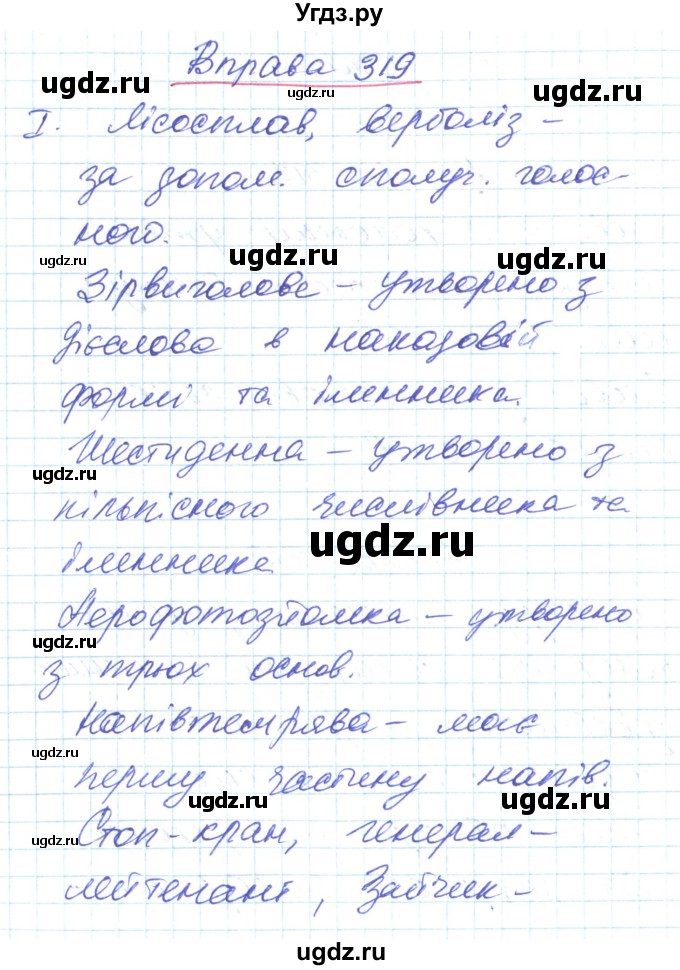 Угдз.ру
Вправа 319
ugdz.ru
ugdz.ru
ugdz.ru
I. Лісосплав, верболіз –
за допом. сполуч. голос-
ного.
ugdz.ru
ugdz.ru
Зірвиголова – утворено з
дієслова в наказовій
формі та іменника.
Шестиденна – утворено з
ugdz.ru
кількісного числівника та
ugdz.ru
іменника
Аерофотозйомка – утворено
ugdz.ru
з трьох основ.
Напівтемрява – має
ugdz.ru
першу частину напів.
ugdz.ru
ugdz.ru
Стоп-кран, генерал-
ugdz.ru
лейтенант, Зайчик-
ugdz.ru
ugdz.ru